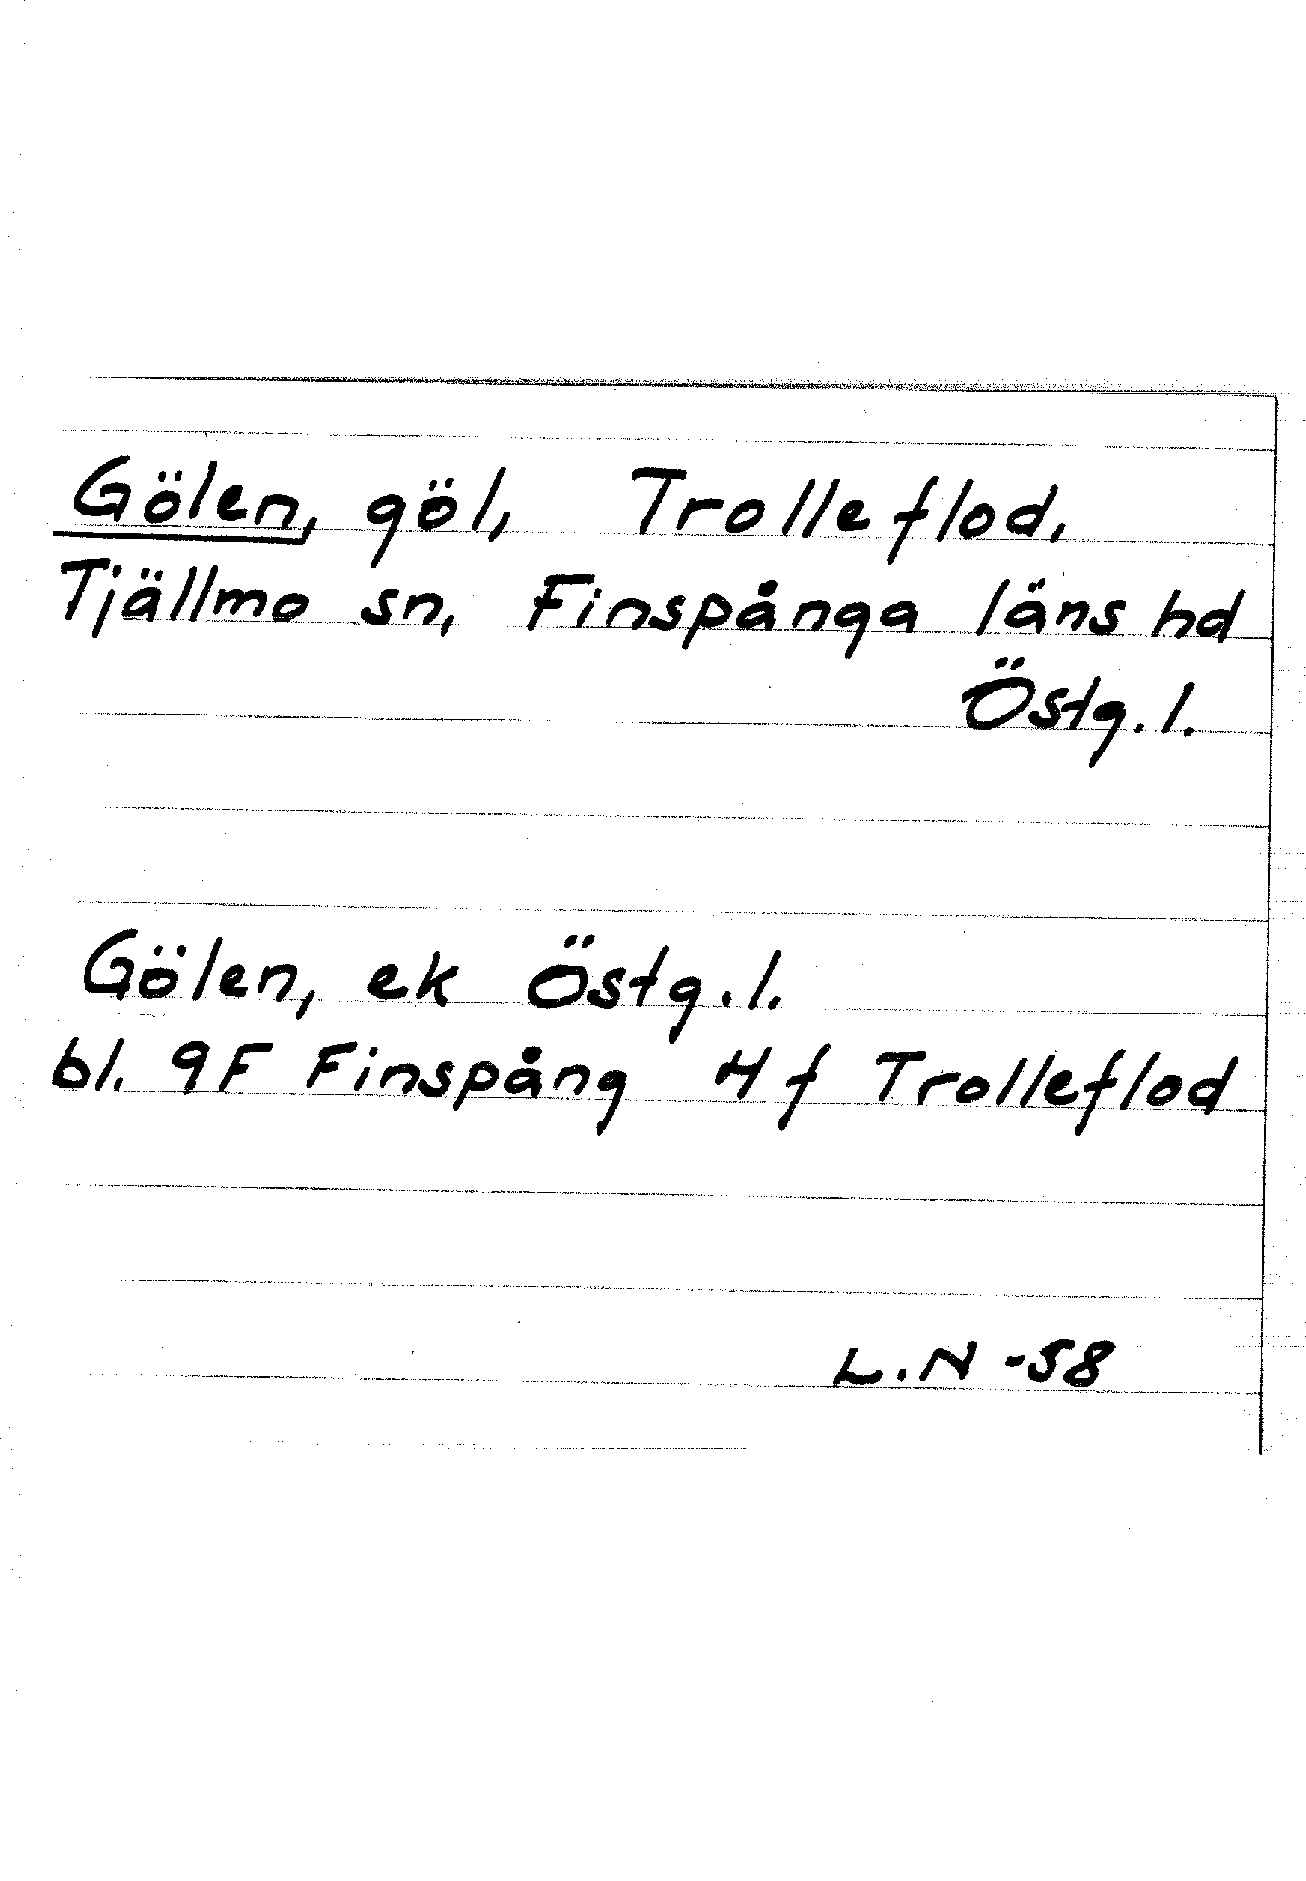 Gölen, göl, Trolleflod,
Tjällmo sn, Finspånga läns hd
Östg. l.
Gölen, ek Östg. l.
bl. 9F Finspång Hf Trolleflod
L.N -58